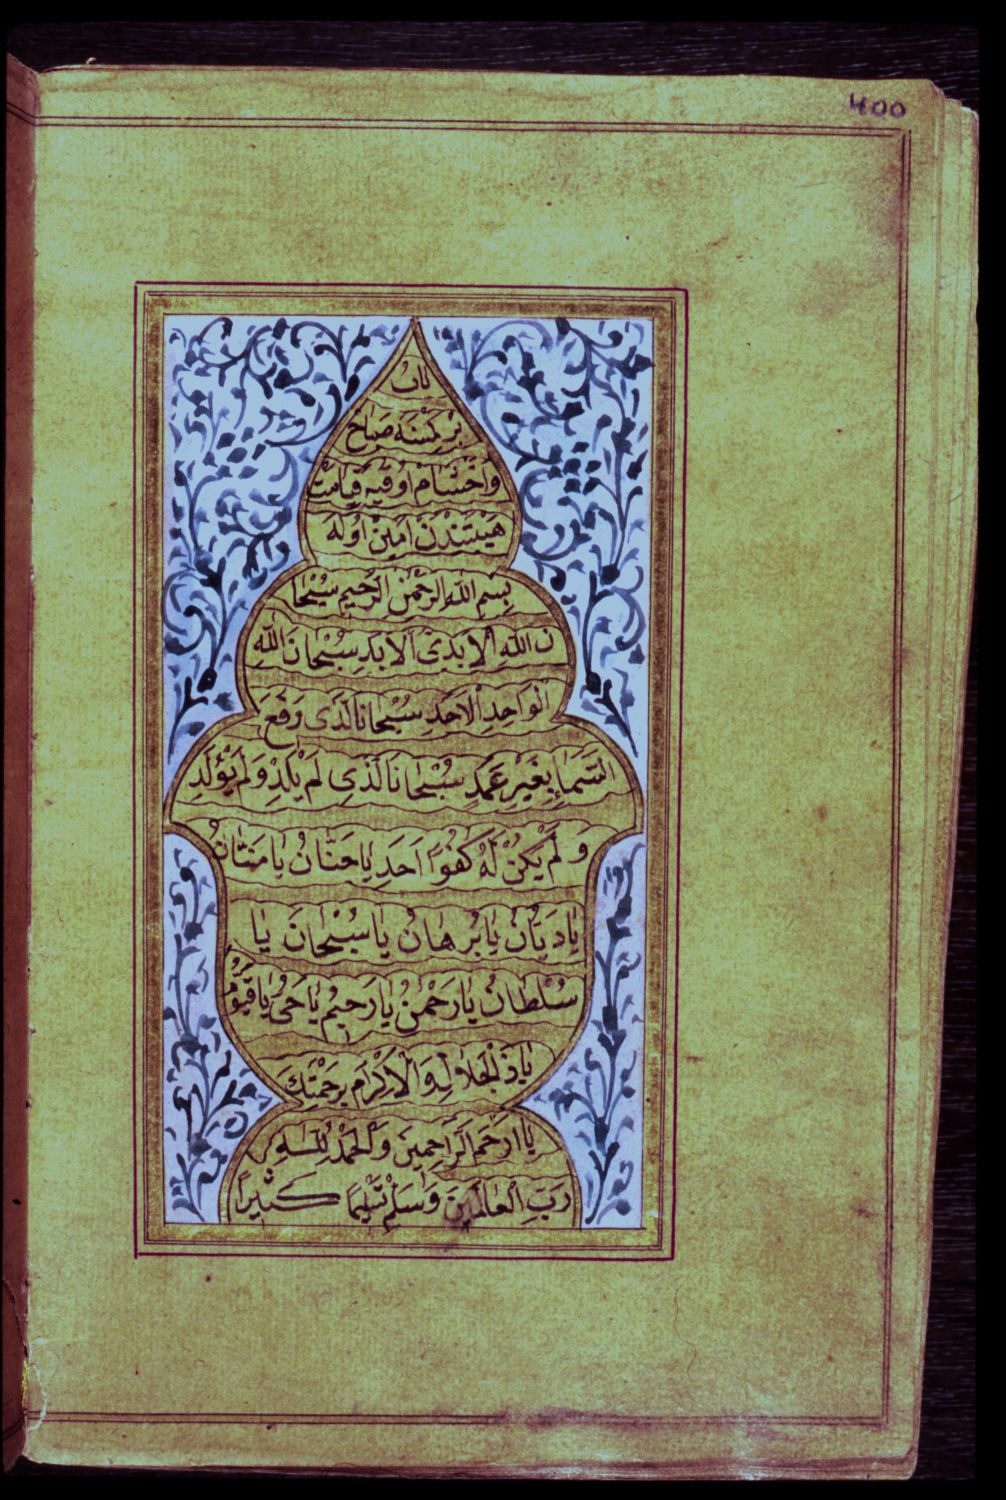 400
باب
بر كمسنه صباح
واخشام اوقيه قيامت
هيبتندن امين اوله
بِسْمِ اللهِ الرَّحْمٰنِ الرَّحِيمِ سُبْحَا
نَ اللهِ الْاَبَدِىِّ الْاَبَدِ سُبْحَانَ اللهِ
الْوَاحِدِ الْاَحَدِ سُبْحَانَ الَّذِى رَفَعَ
السَّمَاءِ بِغَيْرِ عَمَدٍ سُبْحَانَ الَّذِى لَمْ يَلِدْ وَلَمْ يُؤلَدِ
وَ لَمْ يَكُنْ لَهُ كُفُوًا اَحَدٍ يَا حَنَّانُ يَا مَنَّانُ
يَا دَيَّانُ يَا بُرْهَانُ يَا سُبْحَانَ يَا
سُلْطَانُ يَا رَحْمٰنُ يَا رَحِيمُ يَا حَىُّ يَا قَيُّومُ
يَا ذَالْجَلَالِ وَالْاِكْرَامِ بِرَحْمَتِكَ
يَا اَرْحَمَ الرَّاحِمِينَ وَالْحَمْدُ لِلّٰهِ
رَبِّ الْعَالَمِينَ وَسَلِّمْ تَسْلِيمًا كَثِيرًا